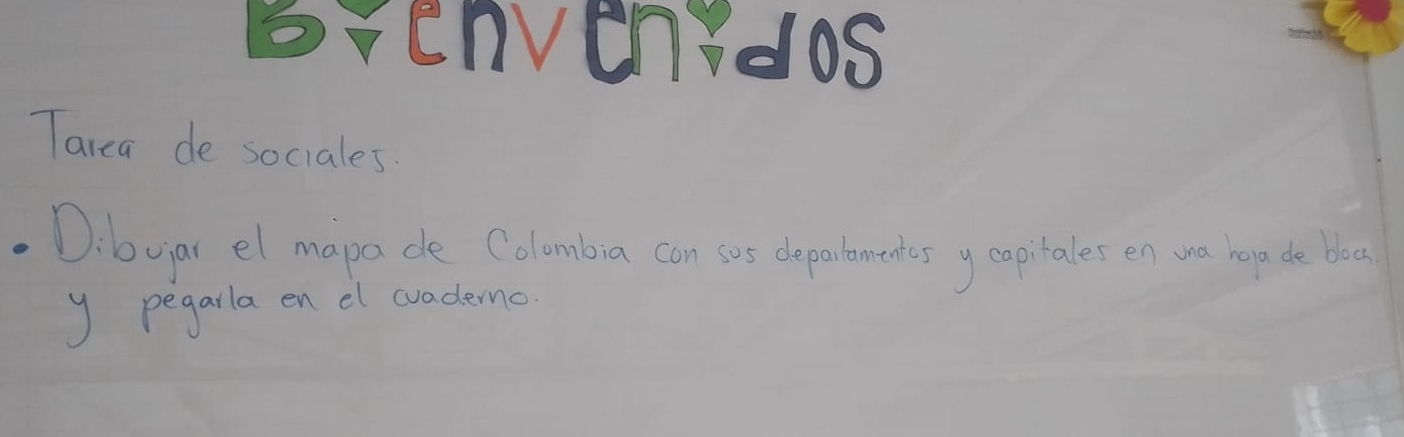 Bienvenidos
Tarea de sociales.
• Dibujar el mapa de Colombia con sus departamentos y capitales en una hoja de block.
y pegarla en el cuaderno.